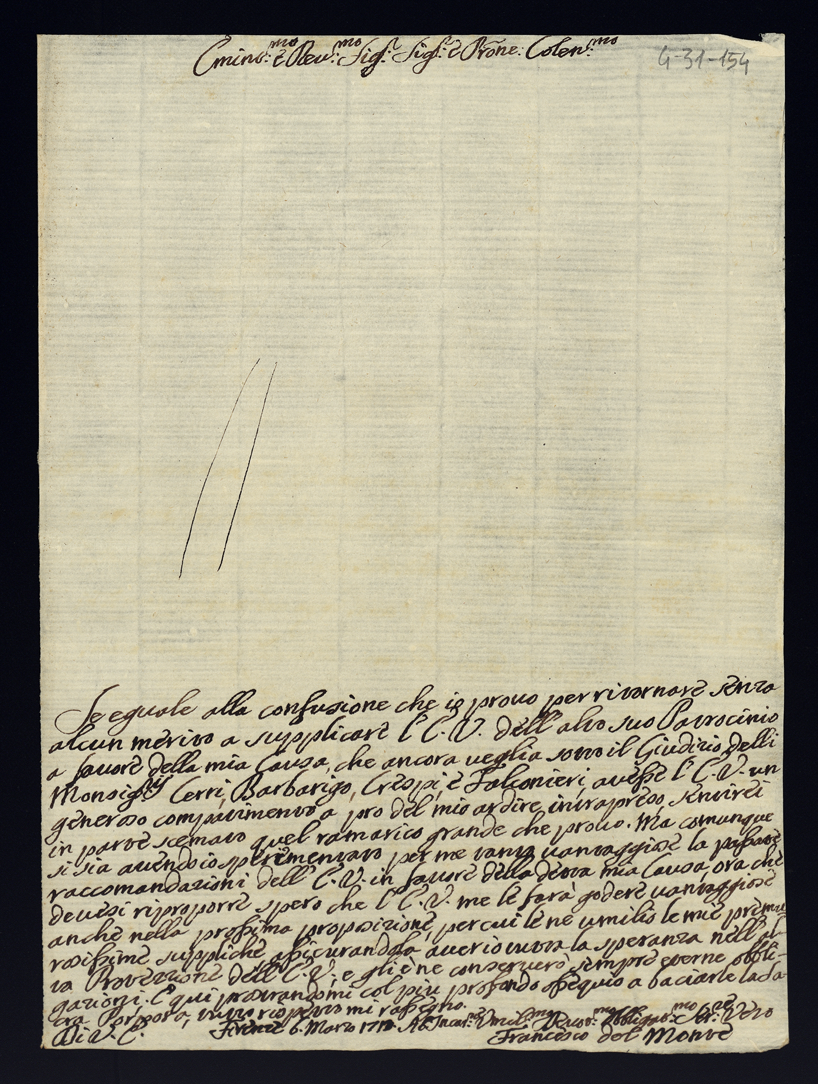 Emin.mo e Rev.mo Sig.r Sig.r e Prõne Colen.mo
4-31-154
Se eguale alla confusione che io prouo per ritornare senza
alcun merito a supplicare l'E.V. dell'alto suo Patrocinio
a fauore della mia Causa, che ancora ueglia sotto il Giudizio delli
Monsig.ri Cerri, Barbarigo, Crespi, e Falconieri, auesse l'E.V. un
generoso compatimento a pro del mio ardire, intrapreso, sentirei
in parte scemato quel ramarico grande che prouo. Ma comunque
si sia auendo io sperimentato per me tanto uantaggiose la passate
raccomandazioni dell'E.V. in fauore della detta mia Causa, ora che
deuesi riproporre spero che l'E.V. me le farà godere uantaggiose
anche nella prossima proposizione, per cui le ne umilio le mie premu
rosissime suppliche assicurandola auer io tutta la speranza nell'al
ta Protezzione dell'E.V. e gli e ne conseruerò sempre eterne obbli-
gazioni. E qui prostrandomi col più profondo ossequio a baciarle la Sa-
cra Porpora, tutto rispetto mi rassegno.
Di V. E.
Firenze 6. Marzo
Umil.mo Deuot.mo Obbligat.mo Ser.re Vero
Francesco del Monte